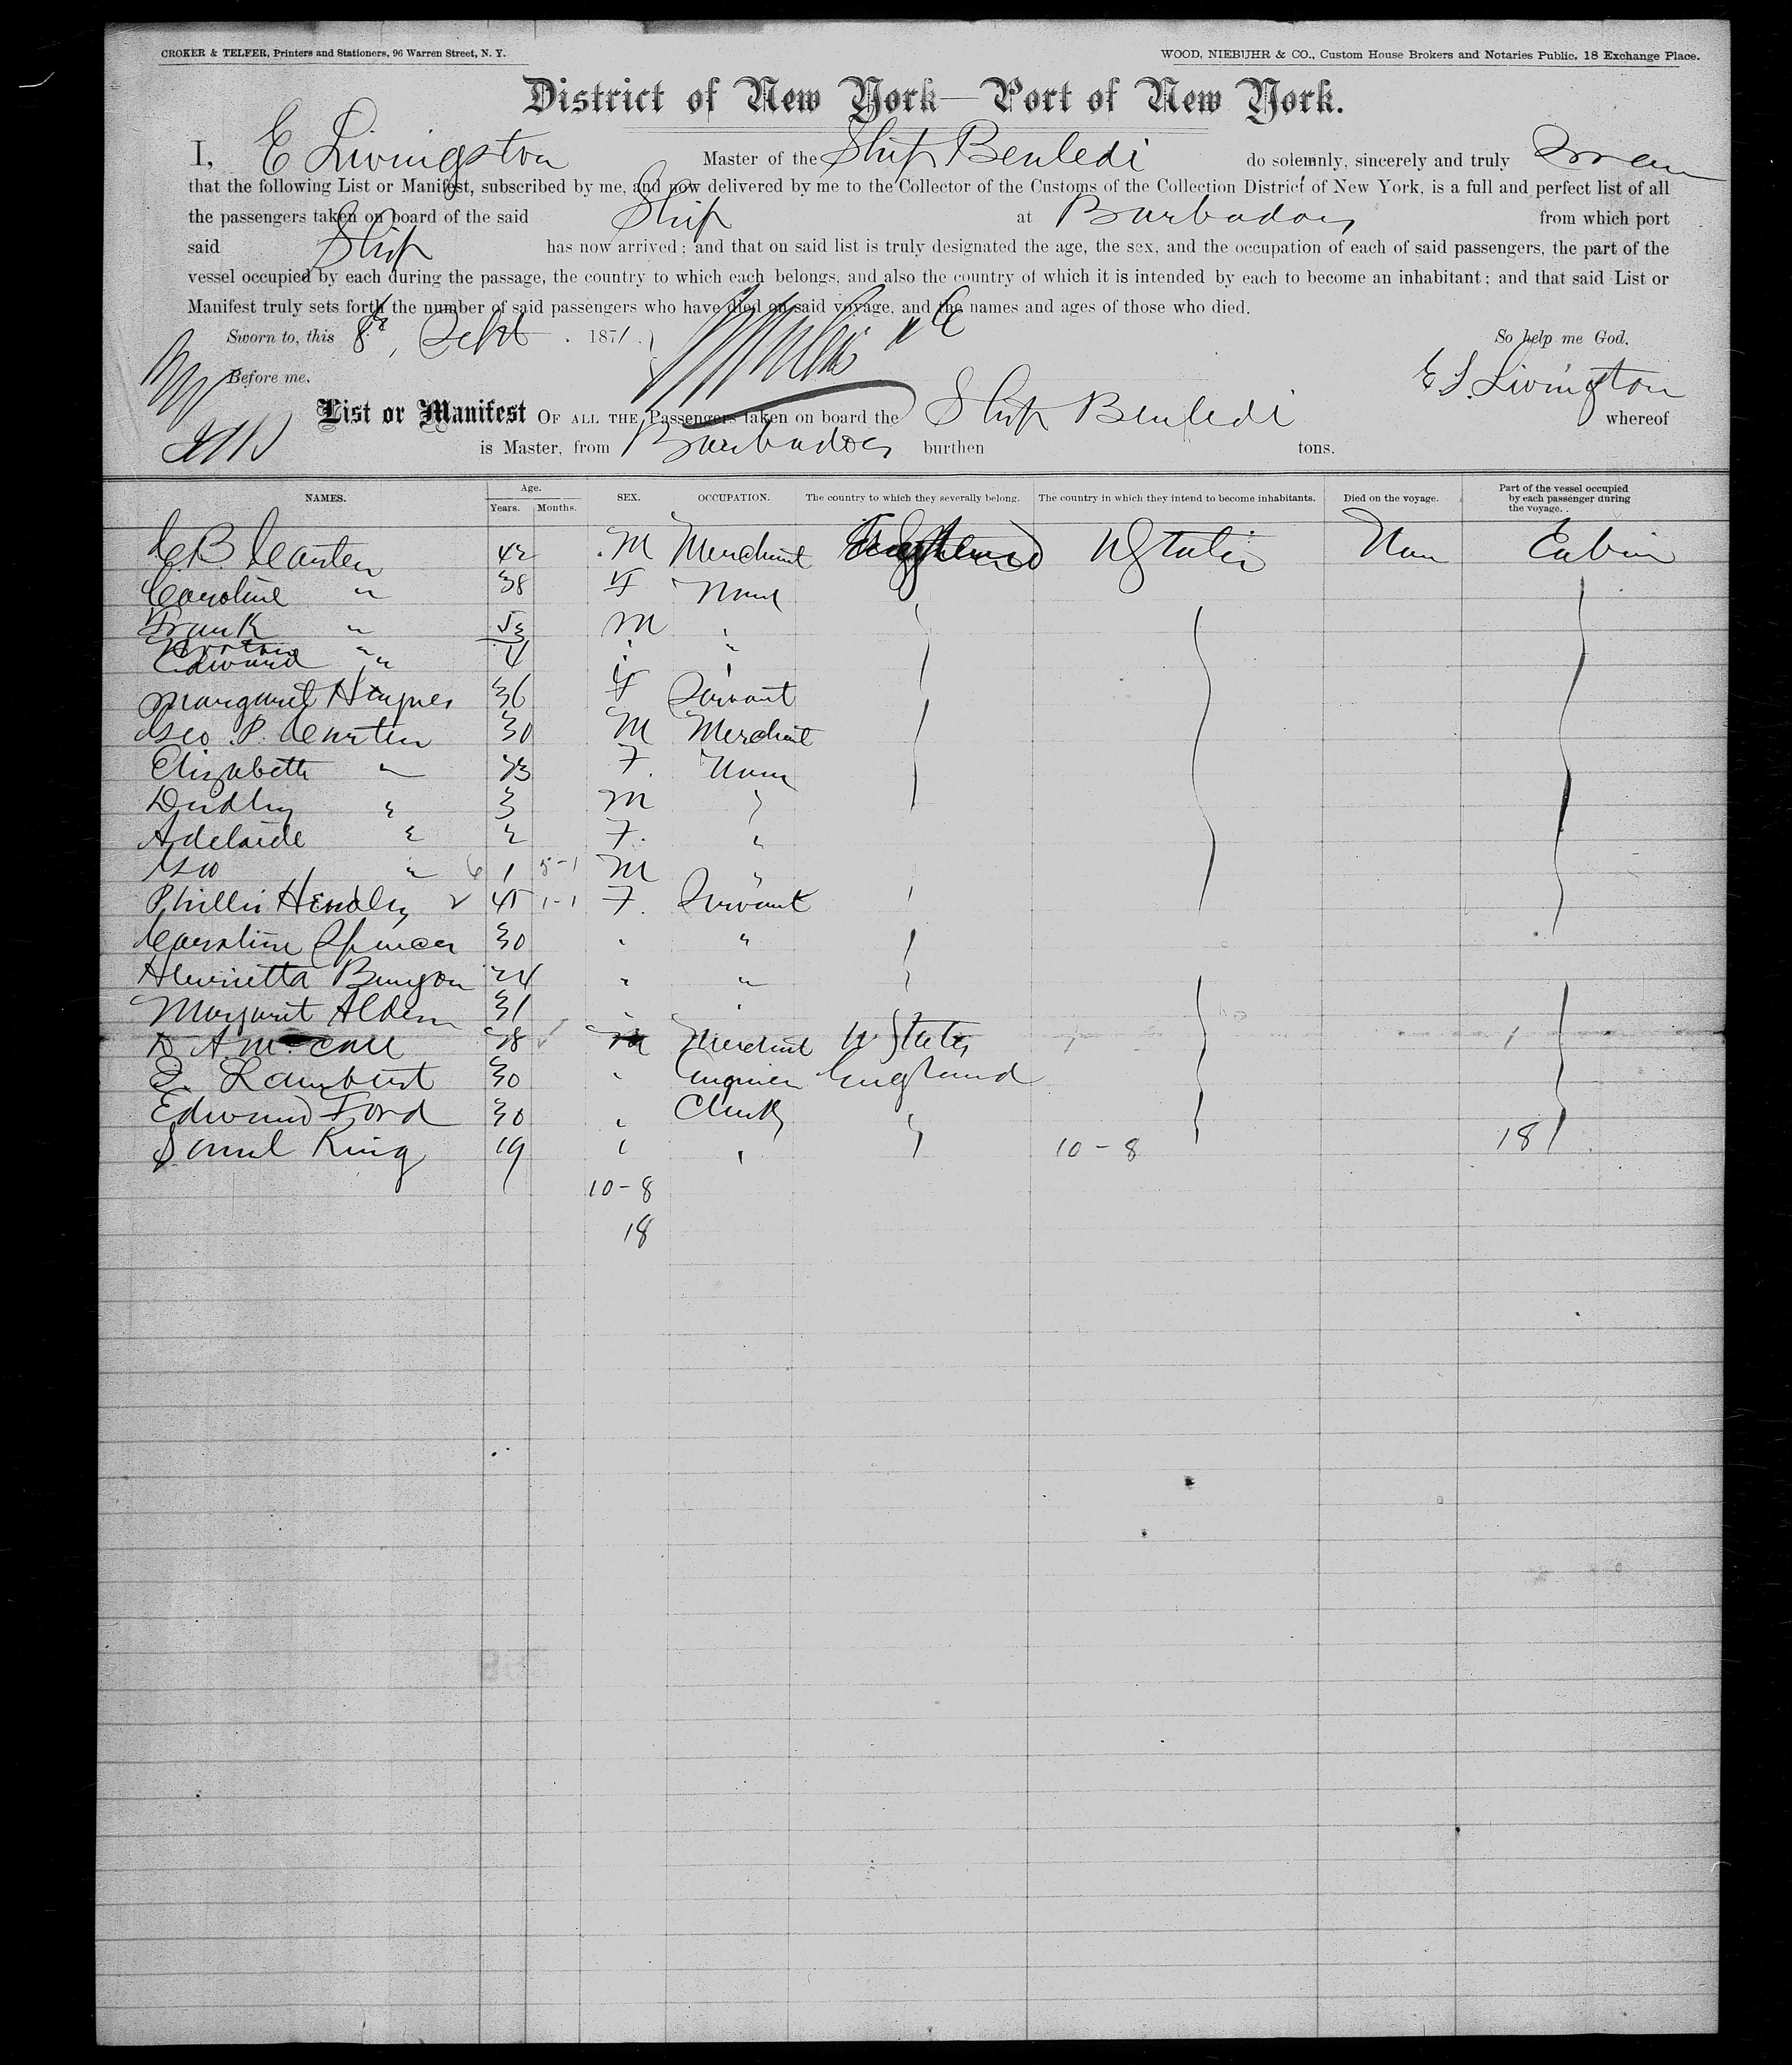 CROKER & TELFER, Printers and Stationers, 96 Warren Street, N. Y. WOOD, NIEBUHR & CO., Custom House Brokers and Notaries Public, 18 Exchange Place.
District of New York—Port of New York.
I, E Livingston Master of the Ship Benledi do solemnly, sincerely and truly Swear
that the following List or Manifest, subscribed by me, and now delivered by me to the Collector of the Customs of the Collection District of New York, is a full and perfect list of all
the passengers taken on board of the said Ship at Barbadoes from which port
said Ship has now arrived; and that on said list is truly designated the age, the sex, and the occupation of each of said passengers, the part of the
vessel occupied by each during the passage, the country to which each belongs, and also the country of which it is intended by each to become an inhabitant; and that said List or
Manifest truly sets forth the number of said passengers who have died on said voyage, and the names and ages of those who died.
Sworn to, this 8th, Sept. 1871. So help me God.
Before me, E S Livingston
List or Manifest OF ALL THE Passengers taken on board the Ship Benledi whereof
is Master, from Barbadoes burthen tons.
NAMES. Age. Years. Months. SEX. OCCUPATION. The country to which they severally belong. The country in which they intend to become inhabitants. Died on the voyage. Part of the vessel occupied by each passenger during the voyage.
C B Carter 42 M Merchant England U States None Cabin
Caroline " 38 F None
Frank " M "
Edward " 4 "
Margaret Haynes 36 F Servant
Geo P. Carter 30 M Merchant
Elizabeth " 23 F. None
Dudley " 3 M "
Adelaide " 2 F. "
Geo " 6 1 5-1 M "
Phillis Hendly 45 1-1 F. Servant
Caroline Spencer 30 " "
Henrietta Bunyon 24 " "
Margaret Alden 31 " "
D A McCall 28 M Merchant U States
Lambert 30 " Engineer England
Edward Ford 30 " Clerk "
Saml King 19 " " " 10-8 18
10-8
18